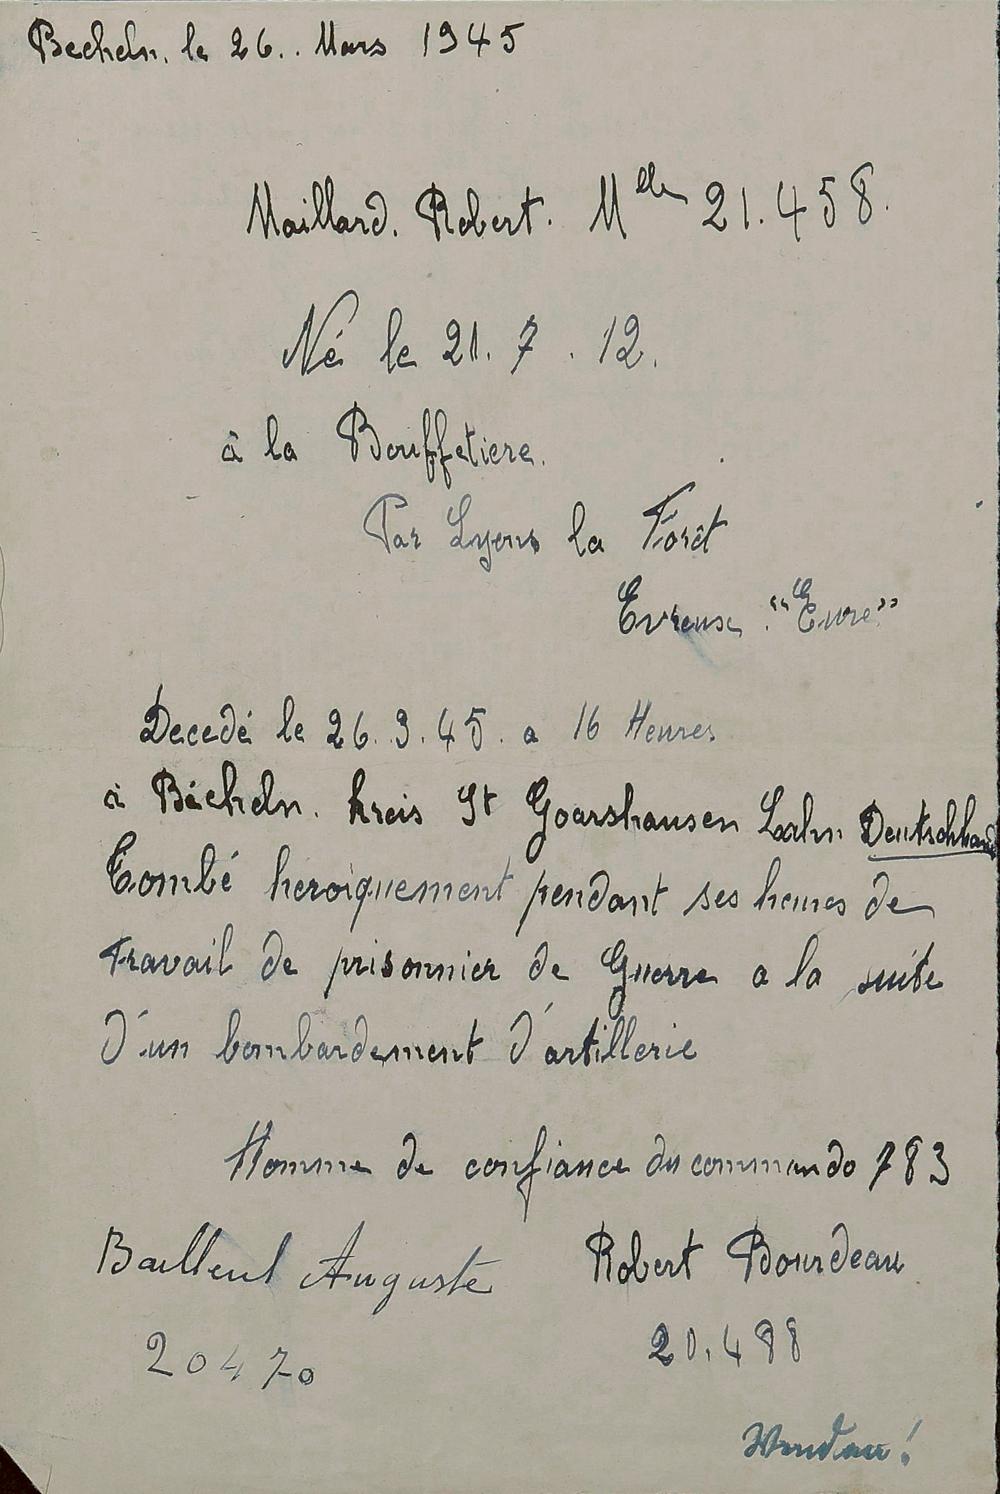 Becheln. le 26.. Mars 1945
Maillard. Robert. Mlle 21.458.
Né le 21. 7 . 12.
à la Bouffetiere.
Par Lyons la Forêt
Evreuse "Eure"
Decedé le 26.3.45. a 16 Heures.
à Bécheln. Kreis St Goarshausen Lahn Deutschland
Tombé heroiquement pendant ses heures de
travail de prisonnier de Guerre a la suite
d'un bombardement d'artillerie
Homme de confiance du commando 783
Bailleul Auguste Robert Bourdeau
20470 20.488